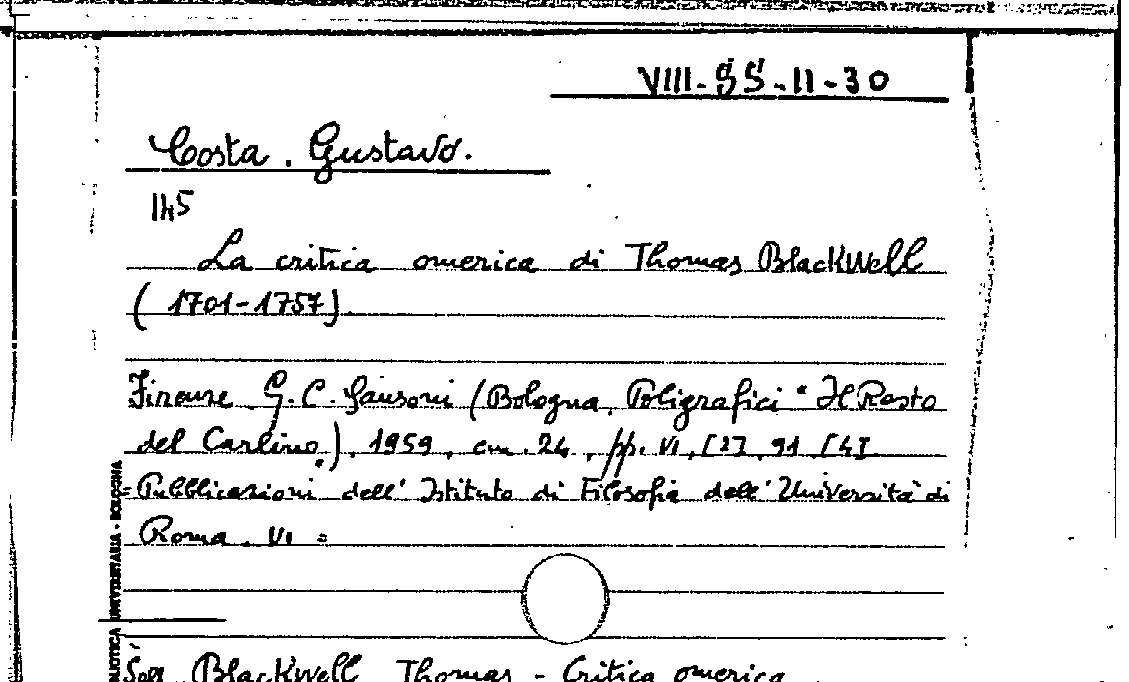 VIII-95-11-30
Costa, Gustavo.
La critica omerica di Thomas Blackwell
(1701-1757).
Firenze, G.C. Sansoni (Bologna, Poligrafici "Il Resto
del Carlino,,), 1959, cm. 24, pp. VI, [2], 91 [4].
=Pubblicazioni dell'Istituto di Filosofia dell'Università di
Roma. VI=
BIBLIOTECA UNIVERSITARIA - BOLOGNA
Sogg. Blackwell Thomas - Critica omerica